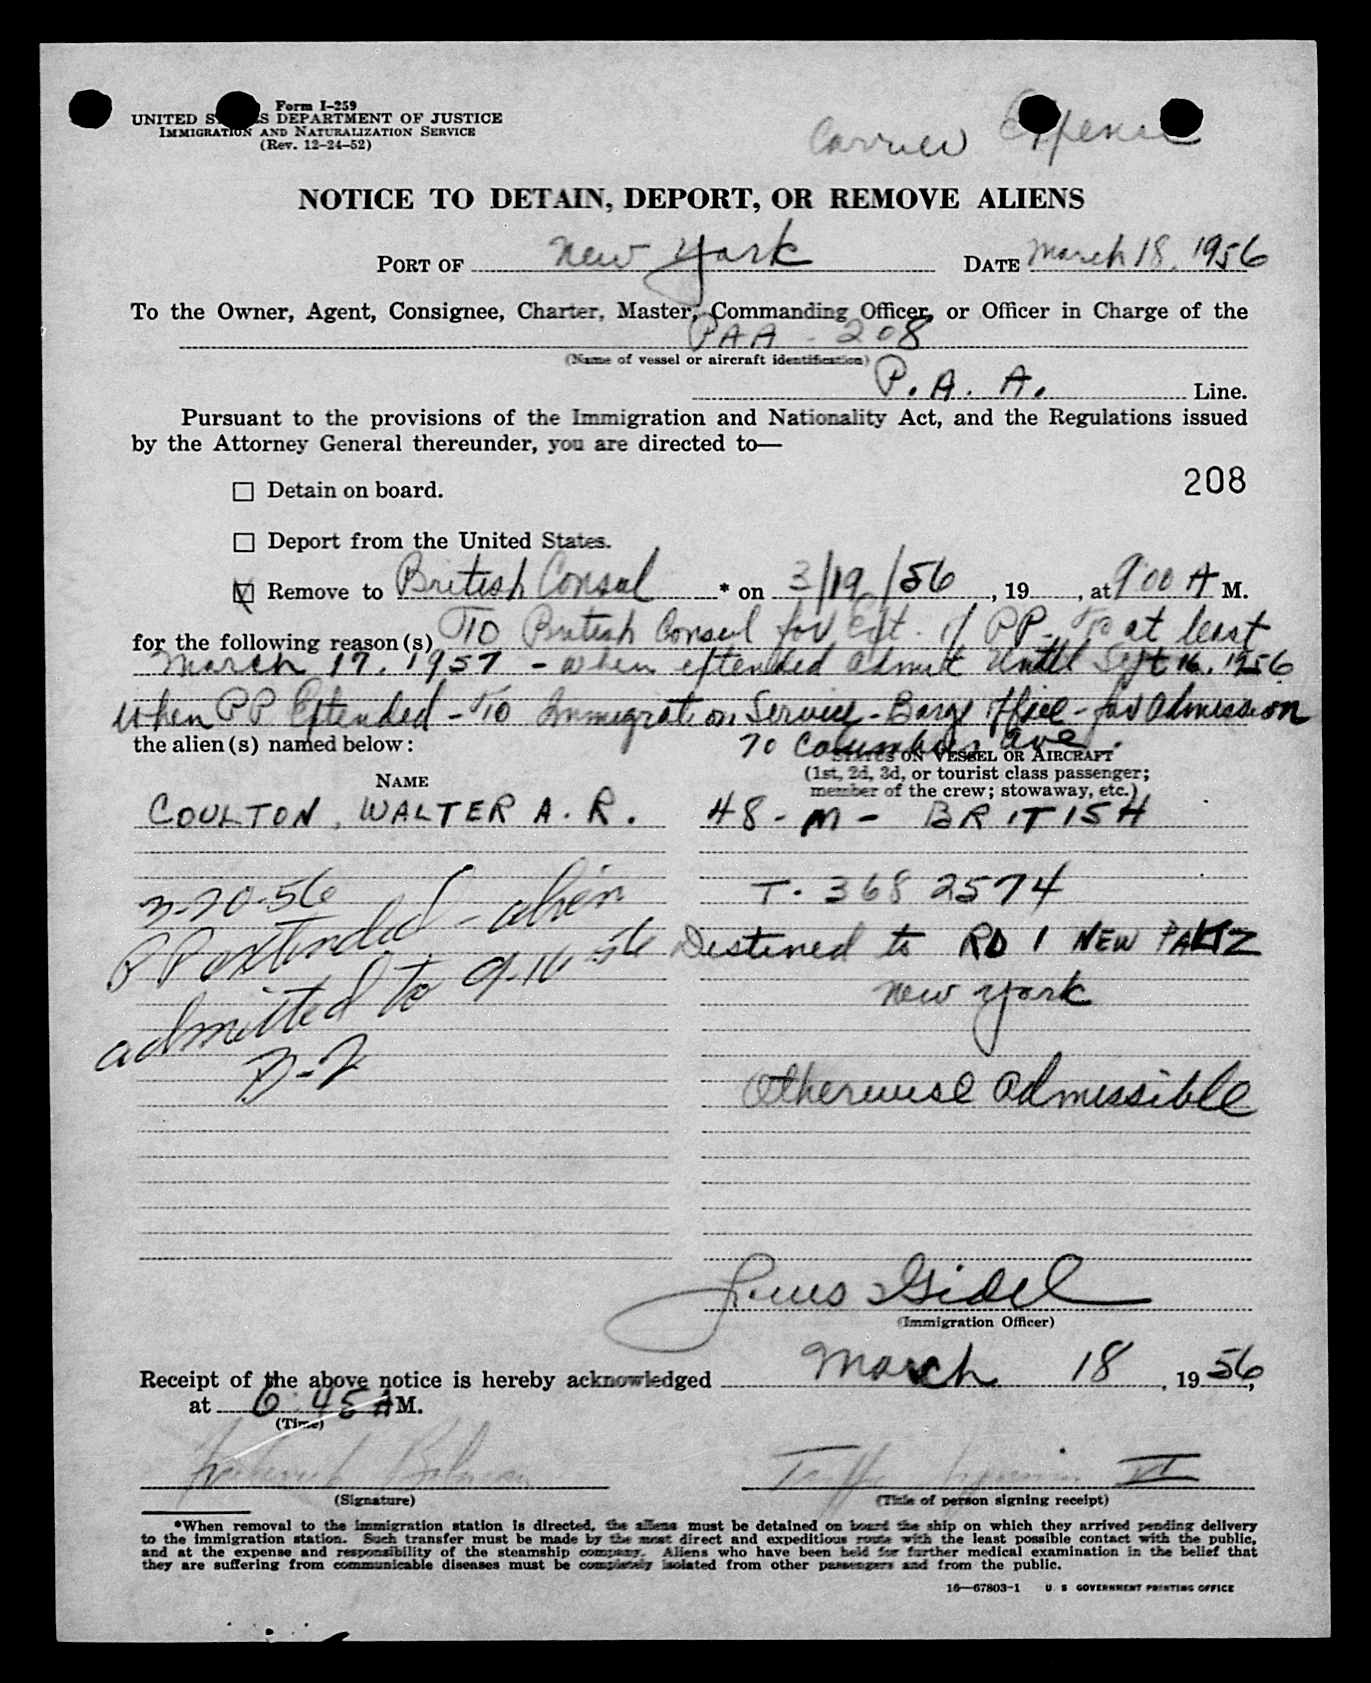 Form I-259
UNITED S S DEPARTMENT OF JUSTICE
IMMIGRATION AND NATURALIZATION SERVICE
(Rev. 12-24-52)
Carrier Expense
NOTICE TO DETAIN, DEPORT, OR REMOVE ALIENS
PORT OF New York DATE March 18, 1956
To the Owner, Agent, Consignee, Charter, Master, Commanding Officer, or Officer in Charge of the
PAA - 208
(Name of vessel or aircraft identification)
P. A. A. Line.
Pursuant to the provisions of the Immigration and Nationality Act, and the Regulations issued
by the Attorney General thereunder, you are directed to—
208
Detain on board.
Deport from the United States.
Remove to British Consul * on 3/19/56, 19 , at 9:00 A M.
for the following reason(s) To British Consul for Ext. of PP - To at least
March 17, 1957 - when extended admit until Sept 16, 1956
When PP Extended - To Immigration Service - Barge Office - for admission
the alien(s) named below:
70 Columbus Ave.
STATUS ON VESSEL OR AIRCRAFT
(1st, 2d, 3d, or tourist class passenger;
member of the crew; stowaway, etc.)
NAME
COULTON, WALTER A. R. 48 - M - BRITISH
T. 368 2574
3-20-56
PP extended - alien
admitted to 9-16-56
B-2
Destined to RD 1 NEW PALTZ
New York
Otherwise admissible
Gidel
(Immigration Officer)
Receipt of the above notice is hereby acknowledged March 18, 1956,
at 6:45 AM.
(Time)
(Signature)
(Title of person signing receipt)
*When removal to the immigration station is directed, the aliens must be detained on board the ship on which they arrived pending delivery
to the immigration station. Such transfer must be made by the most direct and expeditious route with the least possible contact with the public,
and at the expense and responsibility of the steamship company. Aliens who have been held for further medical examination in the belief that
they are suffering from communicable diseases must be completely isolated from other passengers and from the public.
16—67803-1 U. S GOVERNMENT PRINTING OFFICE